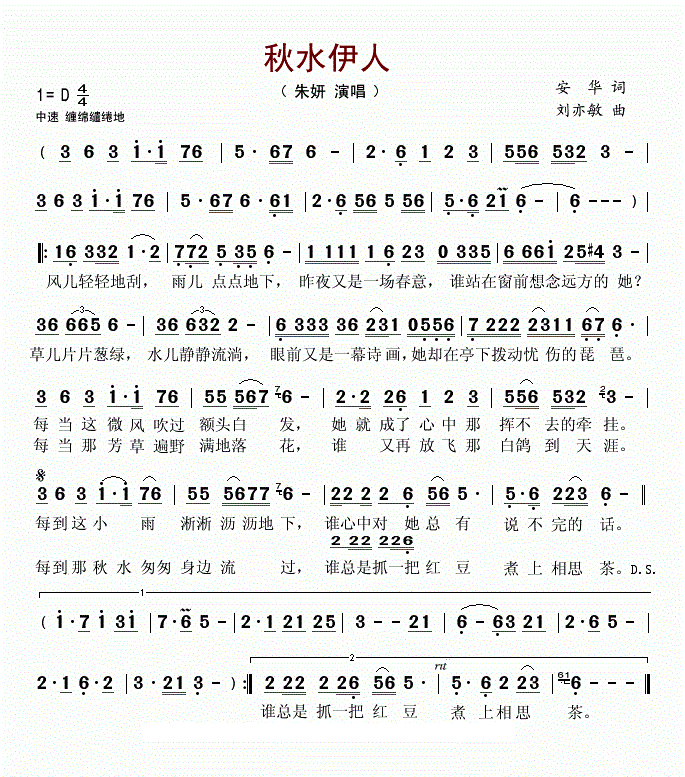 秋水伊人
1=D 4/4
（朱妍 演唱）
安 华 词
中速 缠绵缱绻地
刘亦敏 曲
( 3 6 3 i·i 76 | 5·67 6 - | 2·6 1 2 3 | 556 532 3 - |
3 6 3 i·i 76 | 5·67 6·61 | 2·6 56 5 56 | 5·6 2i 6 - | 6 - - - ) |
‖: 16 332 i·2 | 772 535 6 - | 1 111 1 6 23 0 335 | 6 661 25#4 3 - |
风儿轻轻地刮， 雨儿 点点地下， 昨夜又是一场春意， 谁站在窗前想念远方的 她？
3
3
36 665 6 - | 36 632 2 - | 6 333 36 231 0556 | 7 222 2311 67 6· |
草儿片片葱绿， 水儿静静流淌， 眼前又是一幕诗画，她却在亭下拨动忧 伤的琵 琶。
3 6 3 i·i 76 | 55 567 7 6 - | 2·2 26 1 2 3 | 556 532 2 3 - |
每 当 这 微 风 吹过 额头白 发， 她 就 成了 心 中 那 挥不 去的牵 挂。
每 当 那 芳 草 遍野 满地落 花， 谁 又再 放 飞 那 白鸽 到 天 涯。
3 6 3 i·i 76 | 55 5677 7 6 - | 22 22 2 6 56 5· | 5·6 223 6 - ‖
每到这 小 雨 淅淅 沥沥地 下， 谁心中对 她 总 有 说 不完 的 话。
2 22 22 226
每到那 秋 水 匆匆 身边 流 过， 谁总是抓一把 红 豆 煮 上 相思 茶。D.S.
1
( i·7 i 3i | 7·6 5 - | 2·1 5 21 | 6 - 63 21 | 2·6 5 - |
2·1 6·2 | 3·21 3 - ) :‖
2
rit
2 22 22 26 56 5· | 5·6 2 23 | 61 6 - - - ‖
谁总是 抓一把 红 豆 煮 上相思 茶。